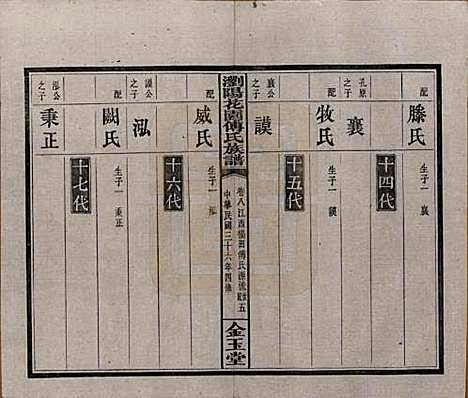 配
滕氏
生子一 襄
十四代
孔原
之子
襄
配
牧氏
生子一 謨
十五代
襄公
之子
謨
瀏陽花園傅氏族譜
卷八江西橫田傅氏源流
五
中華民國三十六年四修
金玉堂
配
威氏
生子一 泓
十六代
謨公
之子
泓
配
闕氏
生子一 秉正
十七代
泓公
之子
秉正